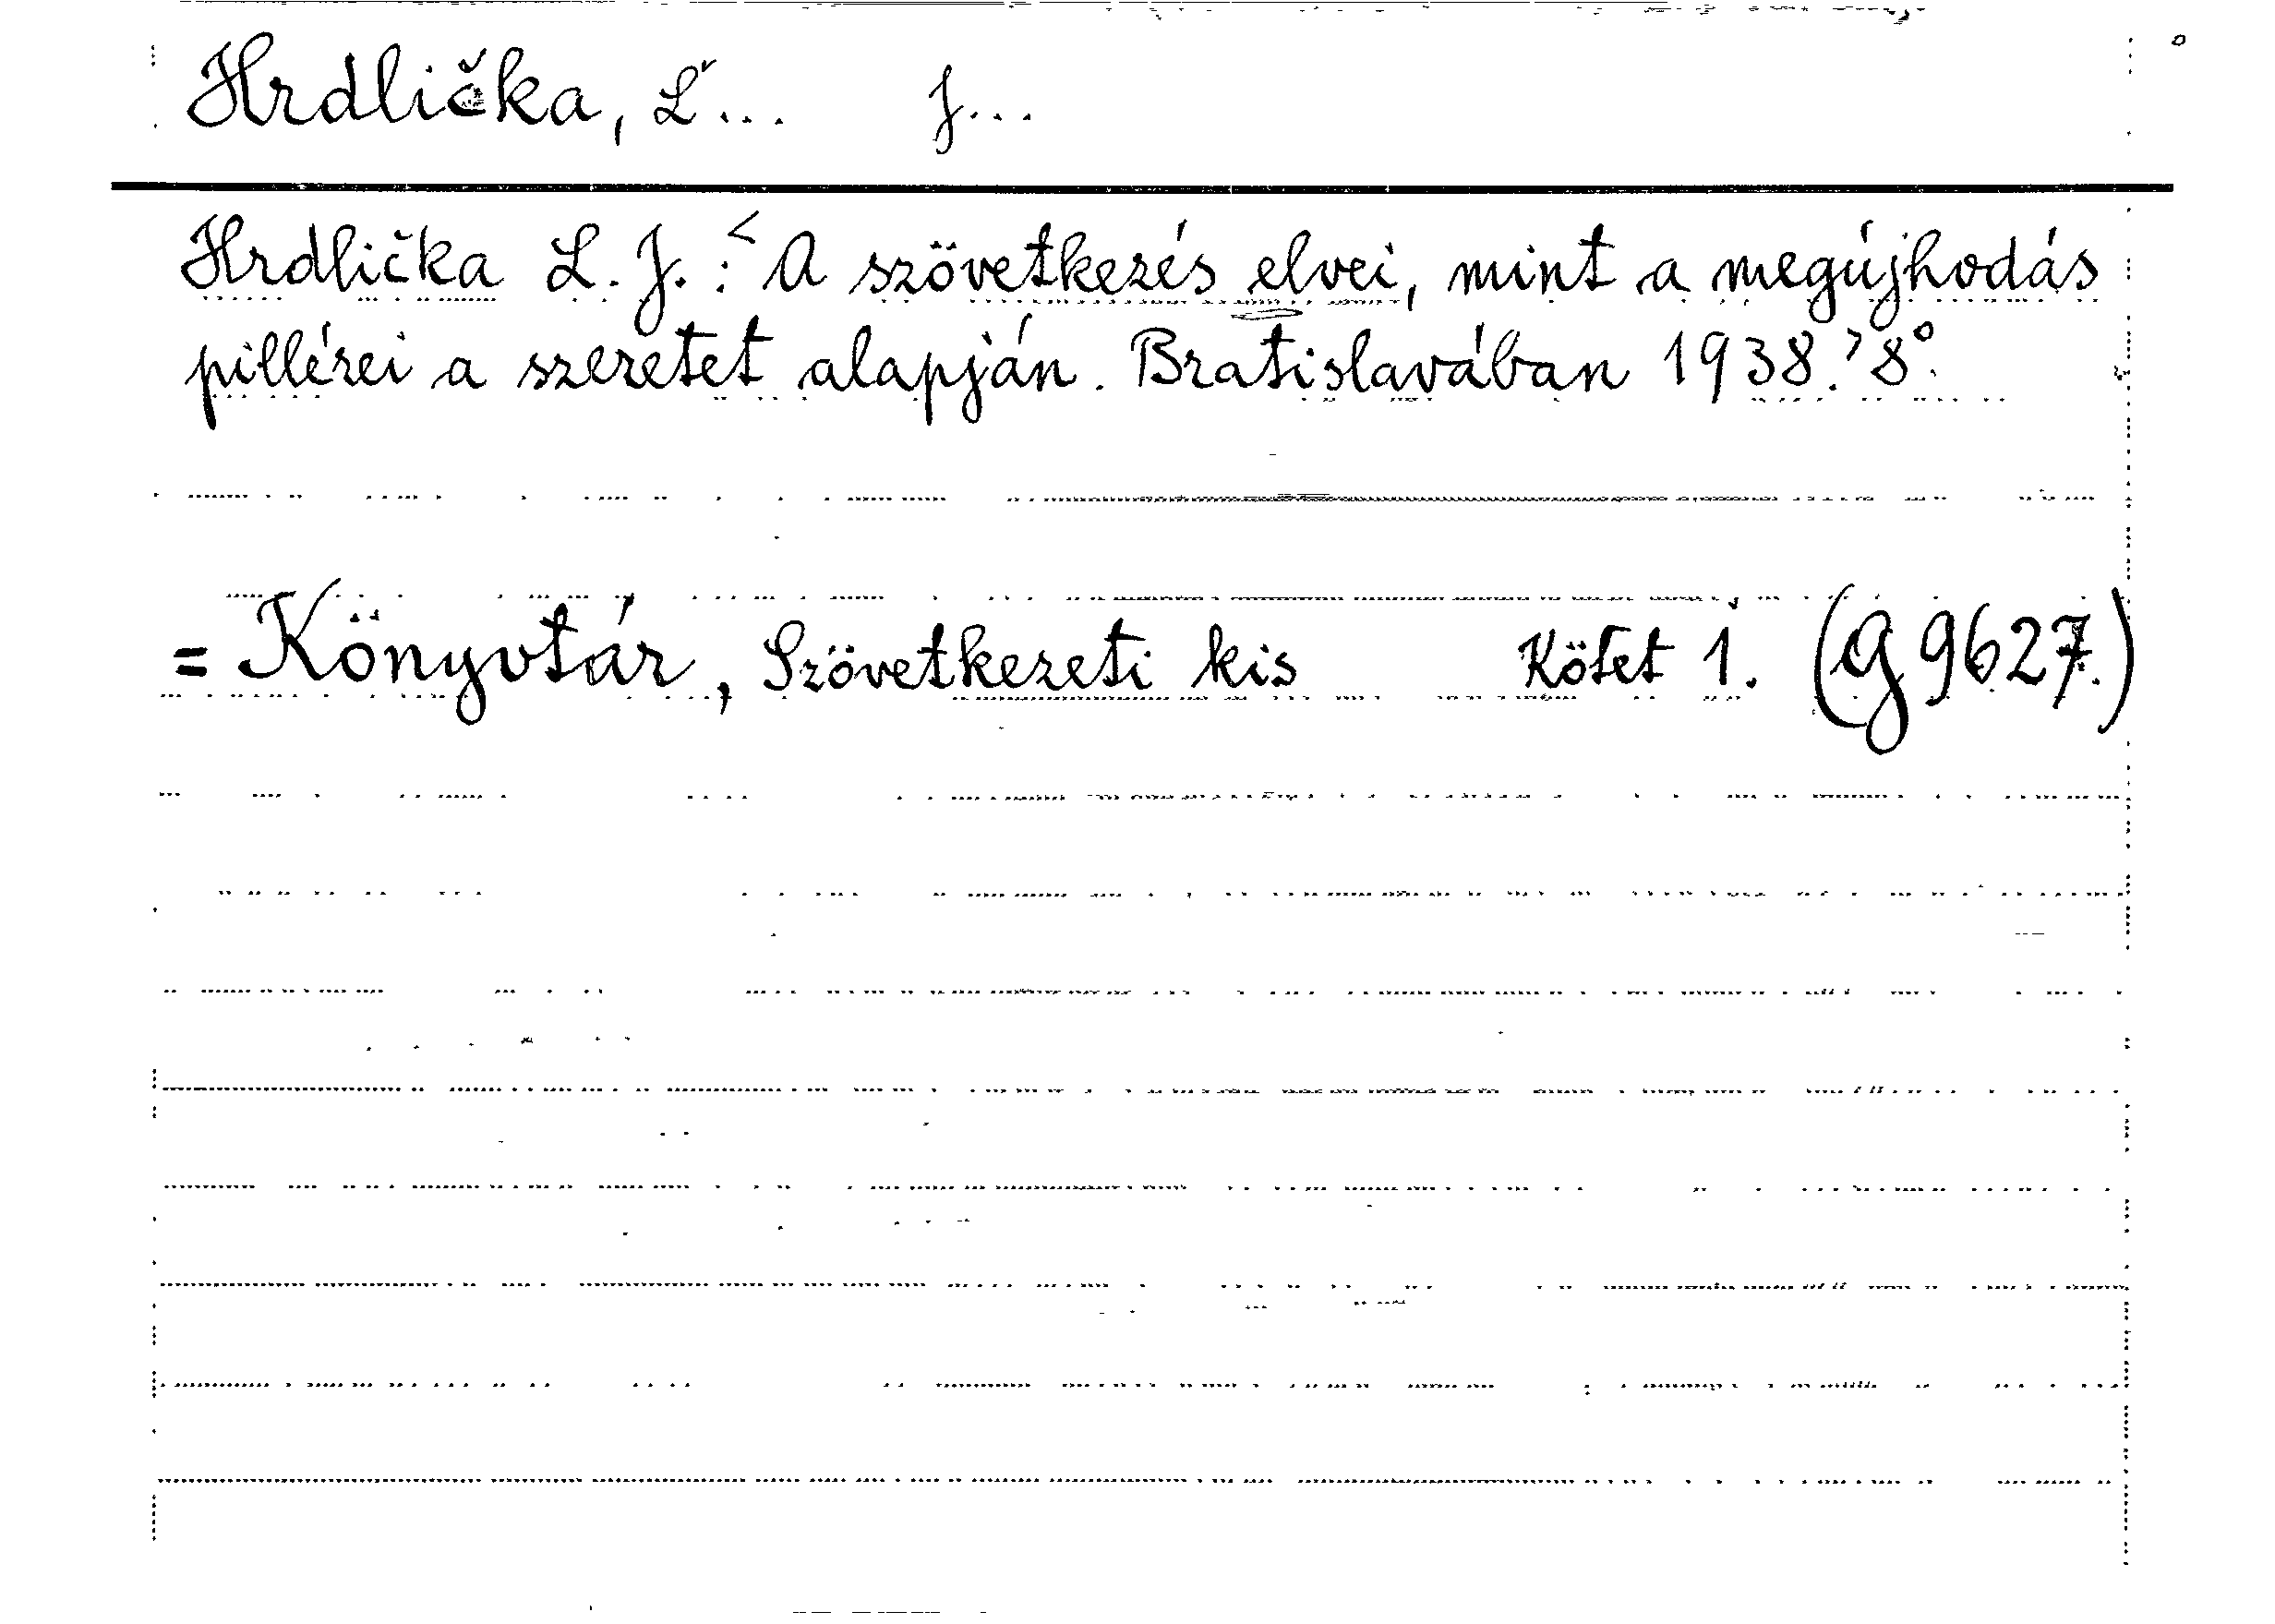 Hrdlička, L... J...
Hrdlička L. J.: <A szövetkezés elvei, mint a megújhodás
pillérei a szeretet alapján. Bratislavában 1938.> 8°.
= Könyvtár, Szövetkezeti kis Kötet 1. (G 9627.)